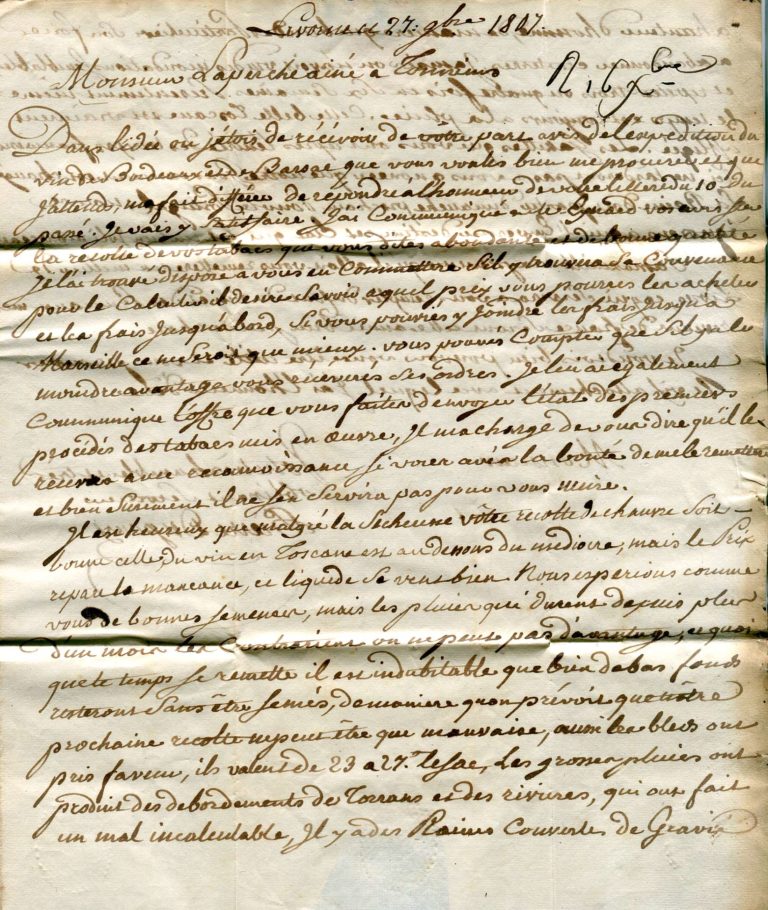 Livorne 27. 9bre 1807.
Monsieur Laperche ainé a Tonneins R 16 Xbre
Dans l'idée ou j'étois de récévoir de vôtre part avis de l'expédition du
vin de Bordeaux et de que vous voulés bien me procurer et que
J'attend, m'a fait différer de répondre à l'honneur de votre lettre du 10 du
passé. Je vais y satisfaire. J'ai Communiqué a Mr Eynard vos avis sur
la recolte de vos tabacs que vous dites abondante et de bonne qualité
Je l'ai trouvé disposé a vous en Commettre s'il y trouvera sa Convenance
pour le Calcul il desire savoir a quel prix vous pourrés les acheter
et les frais Jusqu'abord, si vous pouviés y joindre les frais Jusqu'a
Marseille ce ne seroit que mieux. vous pouvés Compter que s'il y a le
moindre avantage vous recevrés ses ordres. Je lui ai egalement
Communiqué l'offre que vous faites d'envoyer l'état des premiers
procédés des tabacs mis en œuvre, Il m'a chargé de vous dire qu'il le
recevra avec reconnoissance, si vous avés la bonté de me le remettre
et bien surement il ne s'en servira pas pour vous nuire.
Il est heureux que malgré la Secheresse vôtre recolte de chanvre soit
bonne celle du vin en Toscane est au dessous du mediocre, mais le Prix
repare la mancance, ce liquide se vent bien. Nous esperions comme
vous de bonnes semences, mais les pluies qui durent depuis plus
d'un mois les Contrarient on ne peut pas d'avantage, et quoi
que le temps se remette il est indubitable que bien de bas fonds
resteront sans être semés, de maniere qu'on prévoit que nôtre
prochaine recolte ne peut être que mauvaise, aussi les bleds ont
pris faveur, ils valent de 23 a 27 le sac, Les grosses pluies ont
produit des debordements de Torrans et des rivieres, qui ont fait
un mal incalculable, Il y a des Couverts de Gravier